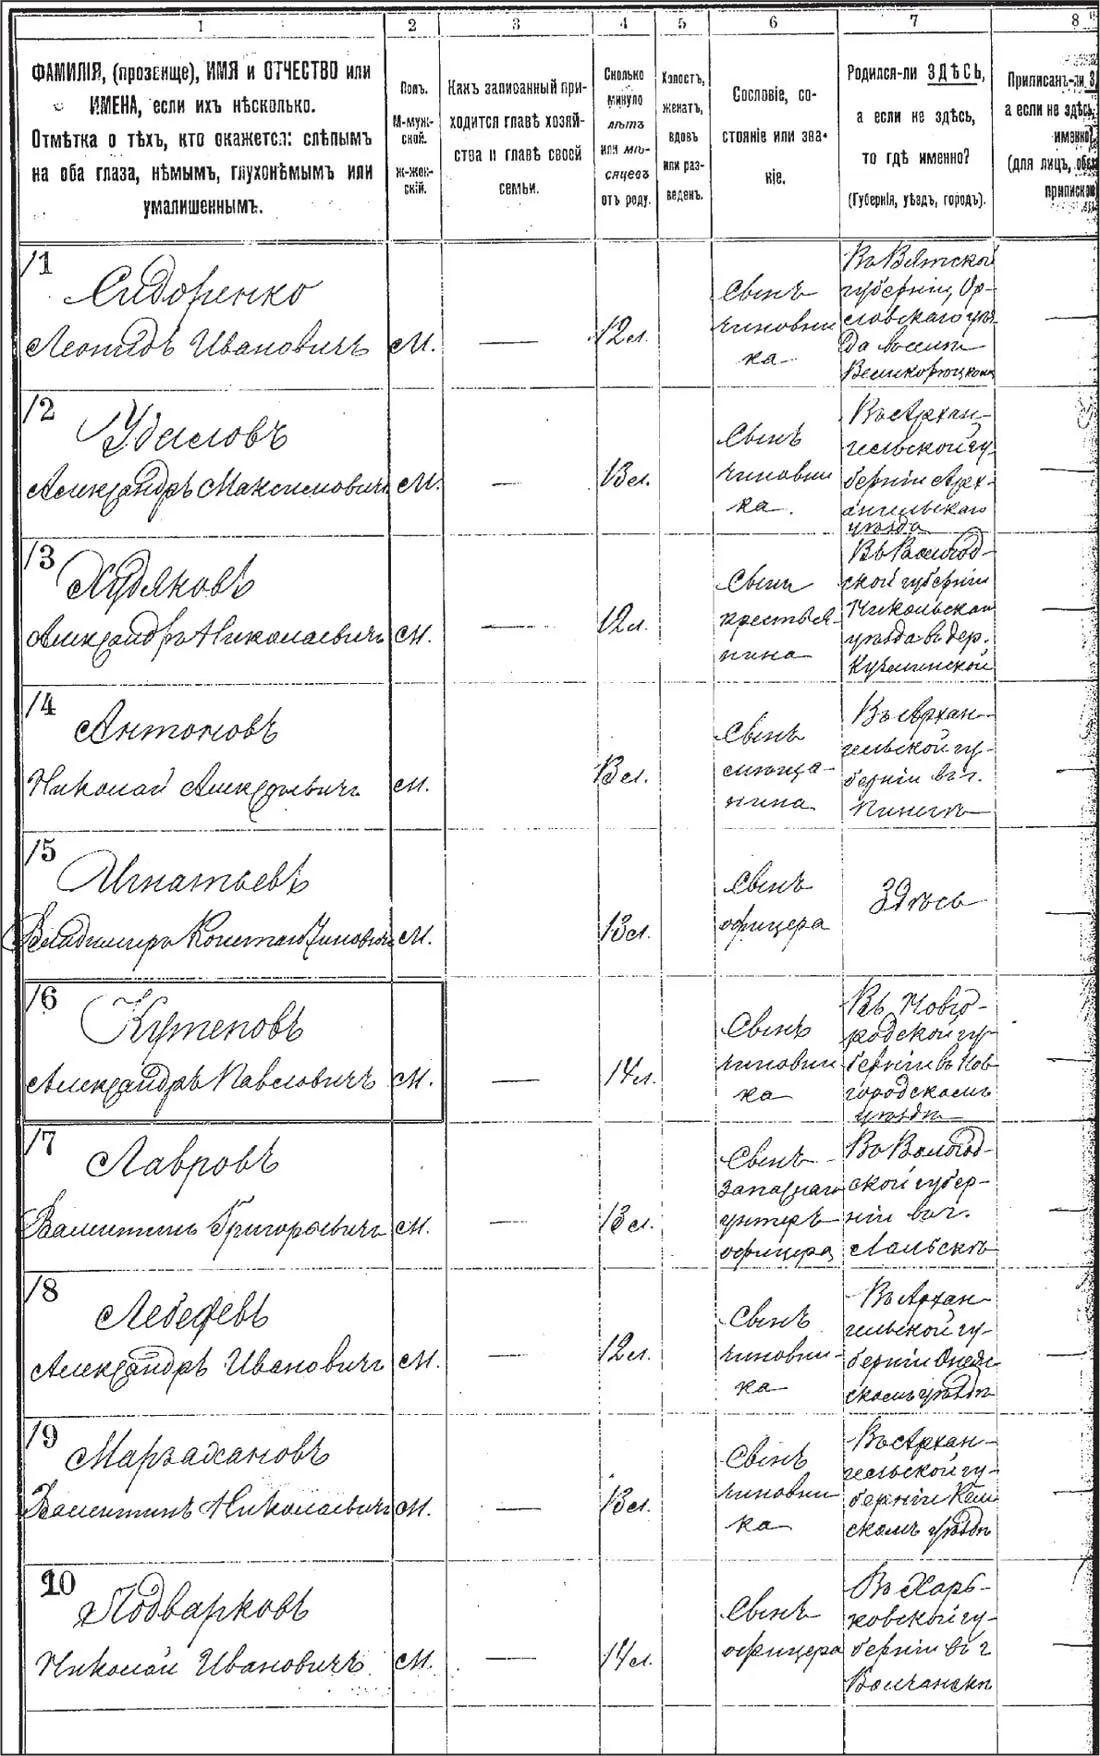 1 2 3 4 5 6 7 8
ФАМИЛІЯ, (прозвище), ИМЯ и ОТЧЕСТВО или
ИМЕНА, если ихъ нѣсколько.
Отмѣтка о тѣхъ, кто окажется: слѣпымъ
на оба глаза, нѣмымъ, глухонѣмымъ или
умалишеннымъ.
Полъ.
М-муж-
ской.
ж-жен-
скій.
Какъ записанный при-
ходится главѣ хозяй-
ства и главѣ своей
семьи.
Сколько
минуло
лѣтъ
или мѣ-
сяцевъ
отъ роду.
Холостъ,
женатъ,
вдовъ
или раз-
веденъ.
Сословіе, со-
стояніе или зва-
ніе.
Родился-ли ЗДѢСЬ,
а если не здѣсь,
то гдѣ именно?
(Губернія, уѣздъ, городъ).
Приписанъ-ли
а если не здѣсь,
именно?
(для лицъ,
1
Сидоренко
Леонидъ Ивановичъ
М.
—
12 л.
Сынъ
чиновни
ка
Въ Вятской
губерніи, Ор-
ловскаго уѣз
да
—
2
Александръ Максимовичъ
М.
—
13 л.
Сынъ
чиновни
ка.
Въ Архан-
гельской гу-
берніи Арх-
ангельскаго
уѣзда
—
3
Худяковъ
Александръ Николаевичъ
М.
—
12 л.
Сынъ
крестья-
нина
Въ Вологод-
ской губерніи
Никольскаго
уѣзда въ дер.
—
4
Антоновъ
Николай Алексѣевичъ
М.
13 л.
Сынъ
мѣща-
нина
Въ Архан-
гельской гу-
берніи въ г.
Пинегѣ
—
5
Игнатьевъ
Владиміръ Константиновичъ
М.
13 л.
Сынъ
офицера
Здѣсь
—
6
Кутеповъ
Александръ Павловичъ
М.
—
14 л.
Сынъ
чиновни
ка
Въ Новго-
родской гу-
берніи въ Нов
городскомъ
уѣздѣ
—
7
Лавровъ
Валентинъ Григорьевичъ
М.
—
13 л.
Сынъ
запаснаго
унтеръ
офицера
Въ Вологод-
ской губер-
ніи въ г.
Лальскѣ
—
8
Лебедевъ
Александръ Ивановичъ
М.
—
12 л.
Сынъ
чиновни-
ка
Въ Архан-
гельской гу-
берніи Онеж
скомъ уѣздѣ
—
9
Валентинъ Николаевичъ
М.
—
13 л.
Сынъ
чиновни
ка
Въ Архан-
гельской гу-
берніи Кем
скомъ уѣздѣ
—
10
Подварковъ
Николай Ивановичъ
М.
—
14 л.
Сынъ
офицера
Въ Харь-
ковской гу-
берніи въ г
Волчанскѣ
—